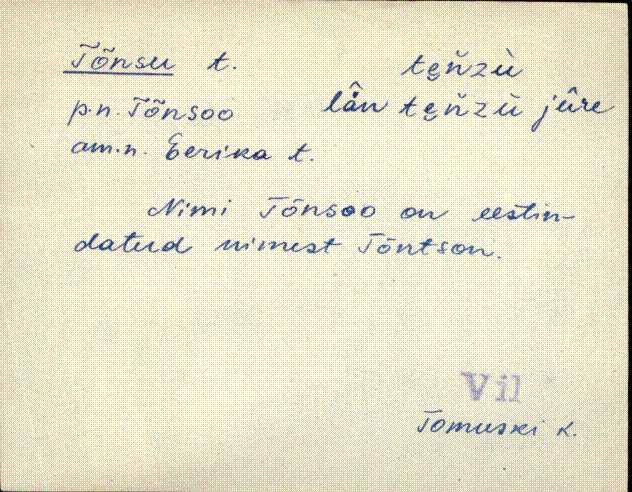 Tõnsu t. te̮ňzù
p.n. Tõnsoo lân te̮ňzù jûre
am.n. Eerika t.
Nimi Tõnsoo on eestin-
datud nimest Tõntson.
Vil
Tomuski k.